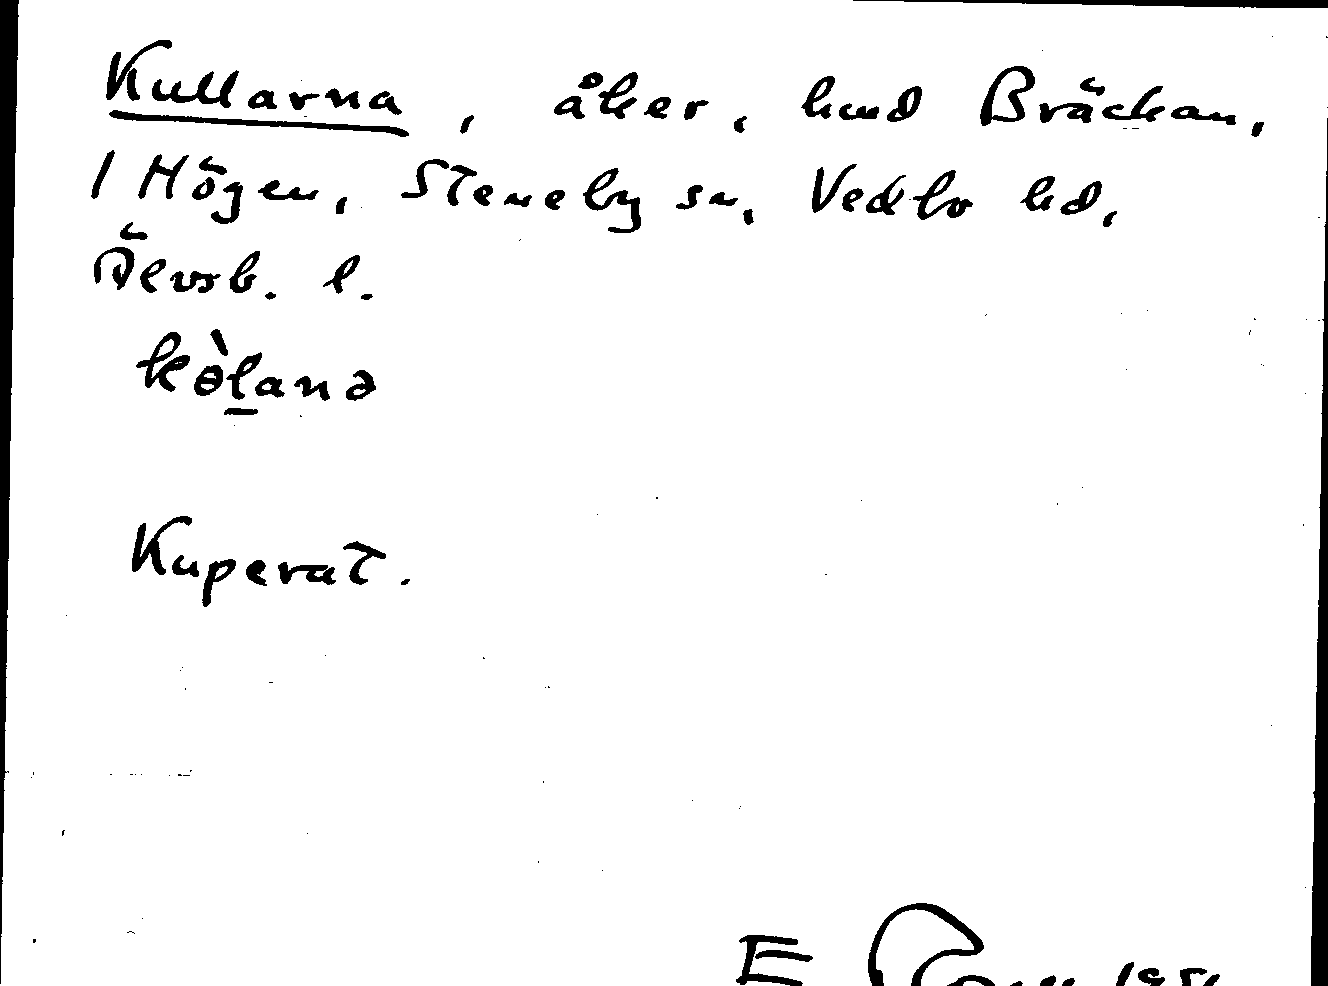 Kullarna, åker, hmd Bräckan,
1 Högen, Steneby sn, Vedbo hd,
Älvsb. l.
kò̵lanə
Kuperat.
E